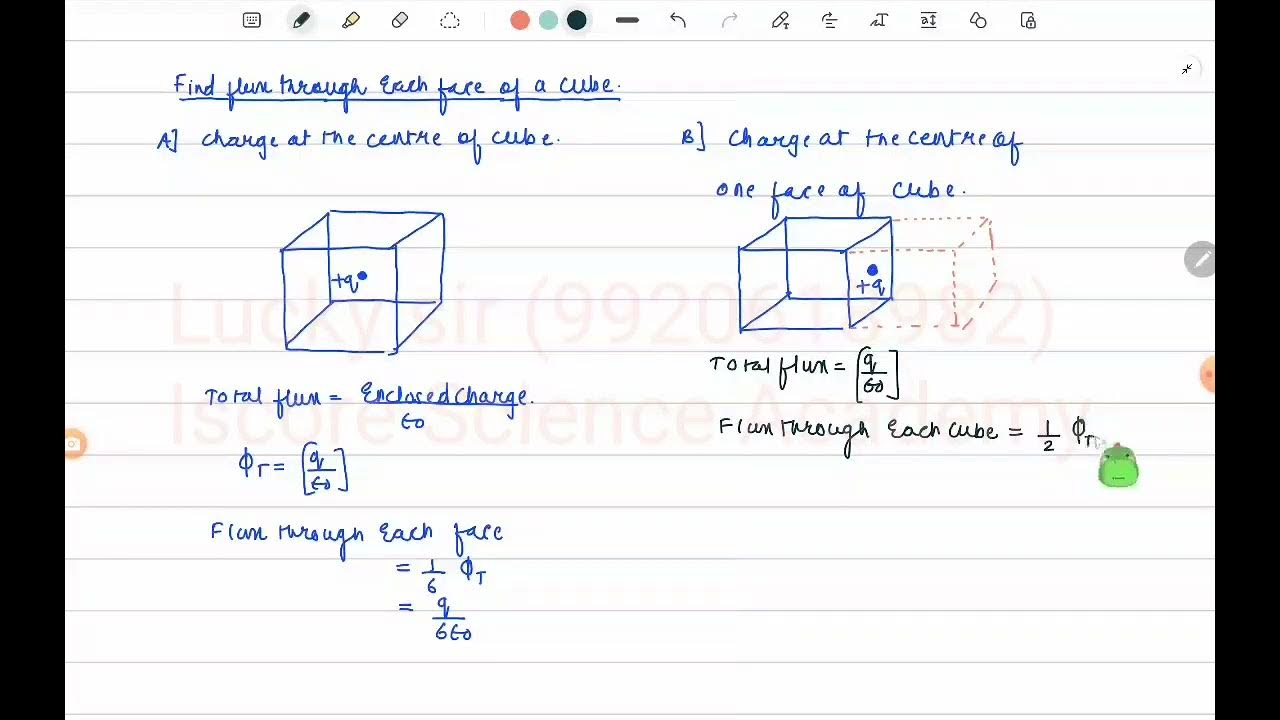 Find flux through each face of a cube.
A] charge at the centre of cube.
+q
Total flux = Enclosed charge.
ϵ0
ϕT = [q/ϵ0]
Flux through each face
= 1/6 ϕT
= q/6ϵ0
B] charge at the centre of
one face of cube.
+q
Total flux = [q/ϵ0]
Flux through each cube = 1/2 ϕT
Lucky sir (9920613982)
Iscore Science Academy